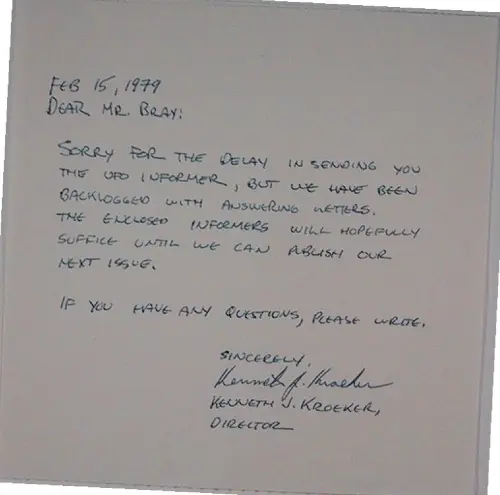 FEB 15, 1979
DEAR MR. BRAY:
SORRY FOR THE DELAY IN SENDING YOU
THE UFO INFORMER, BUT WE HAVE BEEN
BACKLOGGED WITH ANSWERING LETTERS.
THE ENCLOSED INFORMERS WILL HOPEFULLY
SUFFICE UNTIL WE CAN PUBLISH OUR
NEXT ISSUE.
IF YOU HAVE ANY QUESTIONS, PLEASE WRITE.
SINCERELY,
Kenneth J. Kroeker
KENNETH J. KROEKER,
DIRECTOR